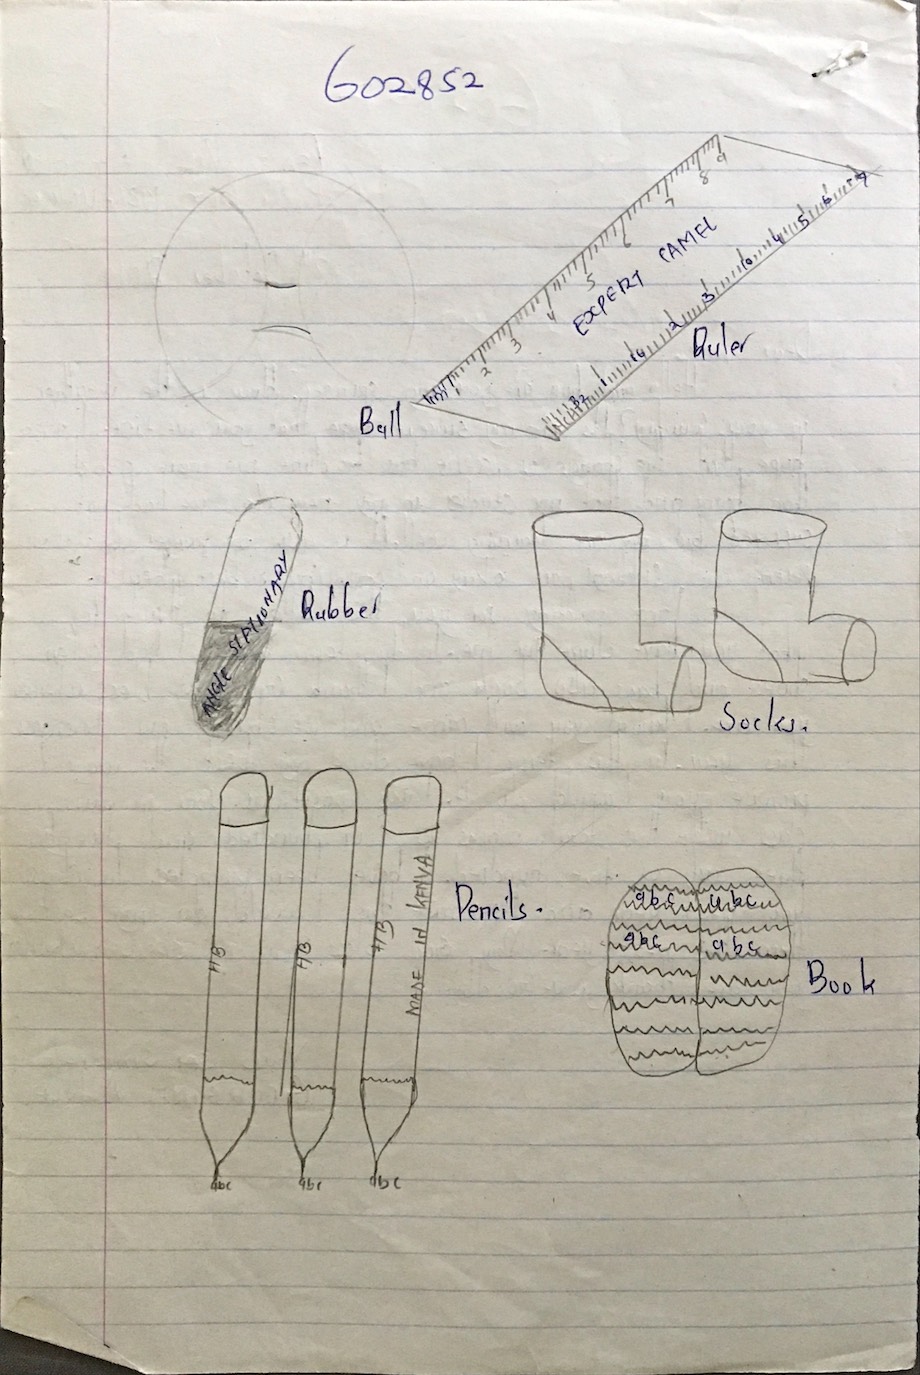 602852
1 2 3 4 5 6 7 8 9
EXPERT CAMEL
Ruler
Ball
ANGLE STATIONARY
Rubber
Socks.
HB
HB
HB
MADE IN KENYA
Pencils.
abc
abc
abc
abc abc
abc abc
Book